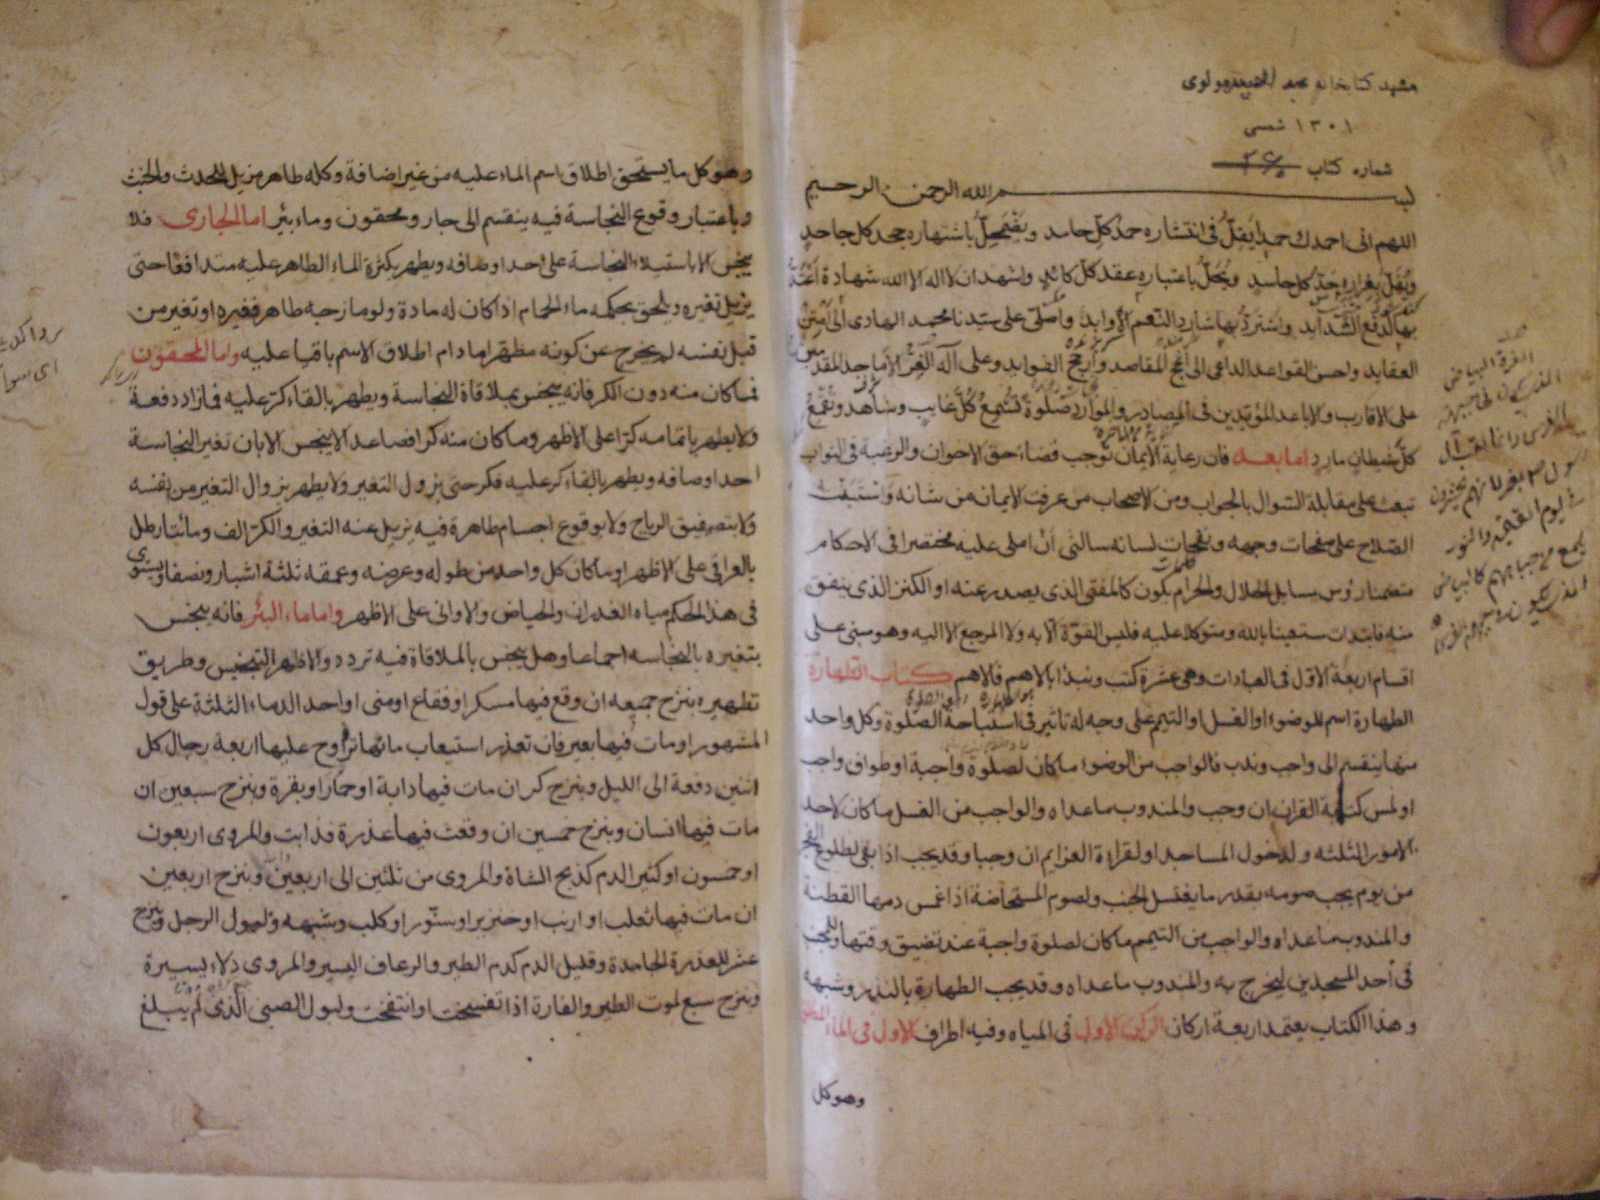 مشهد كتابخانه عبد الحميد مولوى
١٣٠١ شمسى
شماره كتاب
بسم الله الرحمن الرحيم
اللهم انى احمدك حمدا يقل فى انتشاره حمد كل حامد ويضمحل باشتهاره جحد كل جاحد
ويفل بغراره حد كل حاسد ويحل باعتباره عقد كل كائد واشهد ان لا اله الا الله شهادة اعتد
بها لدفع الشدايد واسترد بها شارد النعم الاوابد واصلى على سيدنا محمد الهادى الى امتن
العقايد واحسن القواعد الداعى الى انجح المقاصد وارجح الفوايد وعلى آله الغر الاماجد المقدمين
على الاقارب والاباعد المؤيدين فى المصادر والموارد صلوة تسمع كل غايب وشاهد وتقمع
كل شيطان مارد اما بعد فان رعاية الايمان توجب قضاء حق الاخوان والرغبة فى الثواب
تبعث على مقابلة السوال بالجواب ومن الاصحاب من عرفت الايمان من شانه واستبنت
الصلاح على صفحات وجهه ونفحات لسانه سالنى ان املى عليه مختصرا فى الاحكام
متضمنا رؤس مسايل الحلال والحرام يكون كالمفتى الذى يصدر عنه او الكنز الذى ينفق
منه فابتدات مستعينا بالله ومتوكلا عليه فليس القوة الا به ولا المرجع الا اليه وهو مبنى على
اقسام اربعة الاول فى العبادات وهى عشرة كتب ونبدا بالاهم فالاهم كتاب الطهارة
الطهارة اسم للوضوء او الغسل او التيمم على وجه له تاثير فى استباحة الصلوة وكل واحد
منها ينقسم الى واجب وندب فالواجب من الوضوء ما كان لصلوة واجبة او طواف واجب
او لمس كتابة القران ان وجب والمندوب ما عداه والواجب من الغسل ما كان لاحد
الامور الثلثه ولدخول المساجد او لقراءة العزايم ان وجبا وقد يجب اذا بقى لطلوع الفجر
من يوم يجب صومه بقدر ما يغتسل الجنب ولصوم المستحاضة اذا غمس دمها القطنة
والمندوب ما عداه والواجب من التيمم ما كان لصلوة واجبة عند تضيق وقتها وللجنب
فى أحد المسجدين ليخرج به والمندوب ما عداه وقد يجب الطهارة بالنذر وشبهه
وهذا الكتاب يعتمد اربعة اركان الركن الاول فى المياه وفيه اطراف الاول فى الماء المطلق
وهو كل
وهو كل ما يستحق اطلاق اسم الماء عليه من غير اضافة وكله طاهر مزيل للحدث والخبث
وباعتبار وقوع النجاسة فيه ينقسم الى جار ومحقون وماء بئر اما الجارى فلا
ينجس الا باستيلاء النجاسة على احد اوصافه ويطهر بكثرة الماء الطاهر عليه متدافعا حتى
يزيل تغيره ويلحق بحكمه ماء الحمام اذا كان له مادة ولو مازجه طاهر فغيره او تغير من
قبل نفسه لم يخرج عن كونه مطهرا ما دام اطلاق الاسم باقيا عليه واما المحقون
فما كان منه دون الكر فانه ينجس بملاقاة النجاسة ويطهر بالقاء كر عليه فما زاد دفعة
ولا يطهر باتمامه كرا على الاظهر وما كان منه كرا فصاعدا لا ينجس الا بان تغير النجاسة
احد اوصافه ويطهر بالقاء كر عليه فكر حتى يزول التغير ولا يطهر بزوال التغير من نفسه
ولا بتصفيق الرياح ولا بوقوع اجسام طاهرة فيه تزيل عنه التغير والكر الف ومائتا رطل
بالعراقى على الاظهر او ما كان كل واحد من طوله وعرضه وعمقه ثلثة اشبار ونصفا ويستوى
فى هذا الحكم مياه الغدران والحياض والاوانى على الاظهر واما ماء البئر فانه ينجس
بتغيره بالنجاسه اجماعا وهل ينجس بالملاقاة فيه تردد والاظهر التنجيس وطريق
تطهيره بنزح جميعه ان وقع فيها مسكر او فقاع او منى او احد الدماء الثلثة على قول
المشهور او مات فيها بعير فان تعذر استيعاب مائها تراوح عليها اربعة رجال كل
اثنين دفعة الى الليل وبنزح كر ان مات فيها دابة او حمار او بقرة وبنزح سبعين ان
مات فيها انسان وبنزح خمسين ان وقعت فيها عذرة فذابت والمروى اربعون
او خمسون او كثير الدم كذبح الشاة والمروى من ثلثين الى اربعين وبنزح اربعين
ان مات فيها ثعلب او ارنب او خنزير او سنور او كلب وشبهه ولبول الرجل وبنزح
عشر للعذرة الجامدة وقليل الدم كدم الطير والرعاف اليسير والمروى دلاء يسيرة
وبنزح سبع لموت الطير والفارة اذا تفسخت او انتفخت ولبول الصبى الذى لم يبلغ